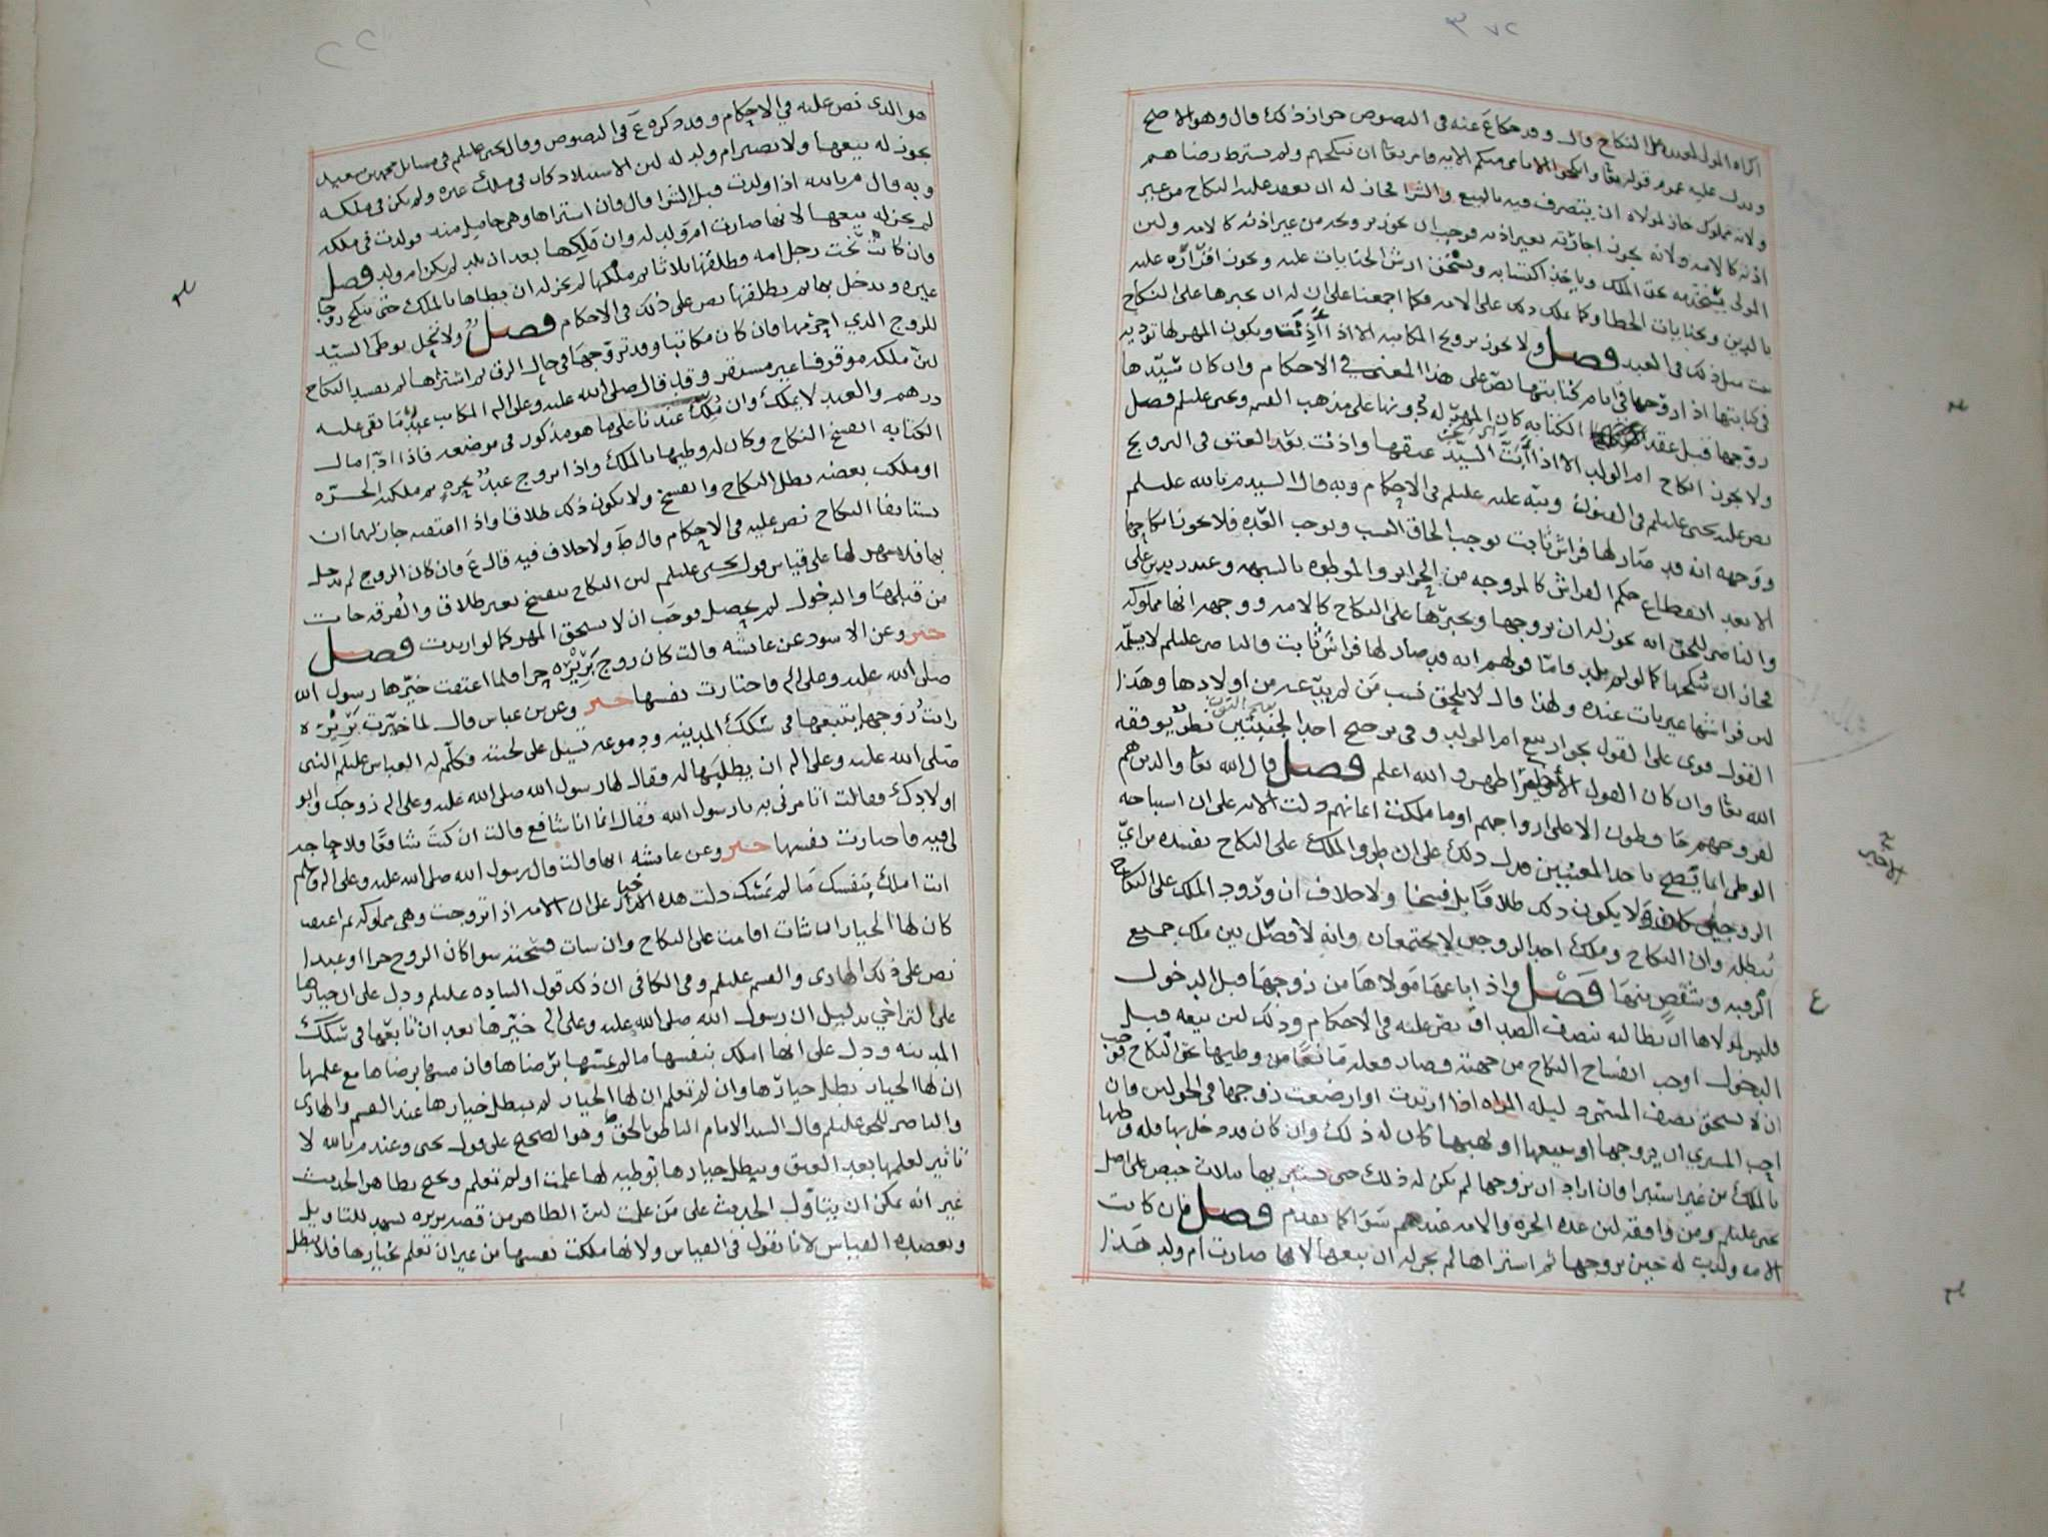 ٣٧٢
اكراه المولى لعبده على النكاح قال وقد حكاه ع عنه في النصوص جواز ذلك قال وهو الاصح
ويدل عليه عموم قوله تعا وانكحوا الايامى منكم الايه فامر تعا ان ننكحهم ولم يشترط رضاهم
ولانه مملوك جاز لمولاه ان يتصرف فيه بالبيع والشرا فجاز له ان يعقد عليه النكاح من غير
اذنه كالامه ولانه يجوز اجازته بغير اذنه فوجب ان يجوز تزويجه من غير اذنه كالامه ولان
المولى يستخدمه بحق الملك وياخذ اكتسابه ويستحق ارش الجنايات عليه ويجوز اقراره عليه
بالدين وبجنايات الخطا وكما يملك ذلك على الامه فكما اجمعنا على ان له ان يجبرها على النكاح
مثل ذلك في العبد فصل ولا يجوز تزويج المكاتبه الا اذا أذنت ويكون المهر لها تؤديه
في كتابتها اذا زوجها في ايام كتابتها نص على هذا المعنى في الاحكام وان كان سيدها
زوجها قبل عقد الكتابه كان المهر له دونها على مذهب القسم ويحيى عليلم فصل
ولا يجوز انكاح ام الولد الا اذا السيد عتقها واذنت بعد العتق في التزويج
نص عليه يحيى عليلم في الفنون ونبه عليه عليلم في الاحكام وبه قال السيد م بالله عليلم
ووجهه انه قد صار لها فراش ثابت يوجب الحاق النسب ويوجب العده فلا يجوز انكاحها
الا بعد انقطاع حكم الفراش كالمزوجه من الحراير والموطوه بالشبهه وعند زيد بن علي
والناصر للحق انه يجوز له ان يزوجها ويجبرها على النكاح كالامه ووجهه انها مملوكه
فجاز ان ينكحها كما لو لم تلد فاما قولهم انه قد صار لها فراش ثابت فالناصر عليلم لا يسلمه
لان فراشها غير ثابت عنده ولهذا قال لا يلحق نسب من لم يدعه من اولادها وهذا
القول قوى على القول بجواز بيع ام الولد وفي ترجيح احد الجنبتين نظر يوفقه
الله تعا وان كان القول الاول اظهر والله اعلم فصل قال الله تعا والذين هم
لفروجهم حافظون الا على ازواجهم او ما ملكت ايمانهم دلت الايه على ان استباحه
الوطى انما يصح باحد المعنيين فدل ذلك على ان طرو الملك على النكاح يفسده من اي
الزوجين كان ولا يكون ذلك طلاقا بل فسخا ولا خلاف ان ورود الملك على النكاح
يبطله وان النكاح وملك احد الزوجين لا يجتمعان وانه لا فصل بين ملك جميع
الرقبه وشقص منها فصل واذا باعها مولاها من زوجها قبل الدخول
فليس لمولاها ان يطالبه بنصف الصداق نص عليه في الاحكام وذلك لان بيعه قبل
الدخول اوجب انفساخ النكاح من جهته وصار فعله مانعا من وطيها بحق النكاح فوجب
ان لا يستحق نصف المسمى دليله المراه اذا ارتدت او ارضعت زوجها في الحولين فان
احب المشتري ان يزوجها او يبيعها او يهبها كان له ذلك وان كان قد دخل بها فله وطيها
بالملك من غير استبرا فان اراد ان يزوجها لم يكن له ذلك حتى تستبري بثلاث حيض على اصل
يحيى عليلم ومن وافقه لان عده الحره والامه عندهم سوا كما تقدم فصل فان كانت
الامه ولدت له حين تزوجها ثم اشتراها لم يجز له ان يبيعها لانها صارت ام ولد هذا
هو الذي نص عليه في الاحكام وقد ذكره ع في النصوص وقال يحيى عليلم في مسائل محمد بن سعيد
يجوز له بيعها ولا تصير ام ولد له لان الاستيلاد كان في ملك غيره ولم يكن في ملكه
وبه قال م بالله اذا ولدت قبل الشرا قال فان اشتراها وهي حامل منه فولدت في ملكه
لم يجز له بيعها لانها صارت ام ولد له وان ملكها بعد ان تلد لم يكن ام ولد فصل
فان كانت تحت رجل امه وطلقها ثلاثا ثم ملكها لم يجز له ان يطاها بالملك حتى تنكح زوجا
غيره ويدخل بها ثم يطلقها نص على ذلك في الاحكام فصل ولا تحل بوطى السيد
للزوج الذي اجرمها فان كان مكاتبا وقد تزوجها في حال الرق ثم اشتراها لم يفسد النكاح
لان ملكه موقوفا غير مستقر وقد قال صلى الله عليه وعلى اله المكاتب عبد ما بقي عليه
درهم والعبد لا يملك وان مُلّك عندنا على ما هو مذكور في موضعه فاذا ادا مال
الكتابه انفسخ النكاح وكان له وطيها بالملك واذا تزوج عبد بحره ثم ملكته الحره
او ملكت بعضه بطل النكاح وانفسخ ولا يكون ذلك طلاقا واذا اعتقته جاز لهما ان
يستانفا النكاح نص عليه في الاحكام قال ط ولا خلاف فيه قال ع فان كان الزوج لم يدخل
بها فلا مهر لها على قياس قول يحيى عليلم لان النكاح ينفسخ بغير طلاق والفرقه جات
من قبلها والدخول لم يحصل فوجب ان لا تستحق المهر كما لو ارتدت فصل
خبر وعن الاسود عن عائشه قالت كان زوج بريره حرا فلما اعتقت خيرها رسول الله
صلى الله عليه وعلى اله فاختارت نفسها خبر وعن بن عباس قال لما خيرت بريره
رايت زوجها يتبعها في سكك المدينه ودموعه تسيل على لحيته فكلم له العباس عليلم النبي
صلى الله عليه وعلى اله ان يطلبها له فقال لها رسول الله صلى الله عليه وعلى اله زوجك وابو
اولادك فقالت اتامرني به يارسول الله فقال انما انا شافع قالت ان كنت شافعا فلا حاجه
لي فيه فاختارت نفسها خبر وعن عائشه انها قالت قال رسول الله صلى الله عليه وعلى اله وسلم
انت املك بنفسك ما لم تمسك دلت هذه الاخبار على ان الامه اذا تزوجت وهي مملوكه ثم اعتقت
كان لها الخيار ان شات اقامت على النكاح وان شات فسخته سوا كان الزوج حرا او عبدا
نص على ذلك الهادي والقسم عليلم وفي الكافي ان ذلك قول الساده عليلم ودل على ان خيارها
على التراخي بدليل ان رسول الله صلى الله عليه وعلى اله خيرها بعد ان تابعها في سكك
المدينه ودل على انها املك بنفسها ما لم يمسها برضاها فان مسها برضاها مع علمها
ان لها الخيار بطل خيارها وان لم تعلم ان لها الخيار لم يبطل خيارها عند القسم والهادي
والناصر للحق عليلم قال السيد الامام الناطق بالحق ط وهو الصحيح على قول يحيى وعند م بالله لا
تاثير لعلمها بعد العتق ويبطل خيارها بوطيه لها علمت او لم تعلم ويحتج بظاهر الحديث
غير انه يمكن ان يتاول الحديث على من علمت لان الظاهر من قصه بريره يشهد للتاويل
ويعضده القياس لانا نقول في القياس ولانها ملكت نفسها من غير ان تعلم بخيارها فلا يبطل